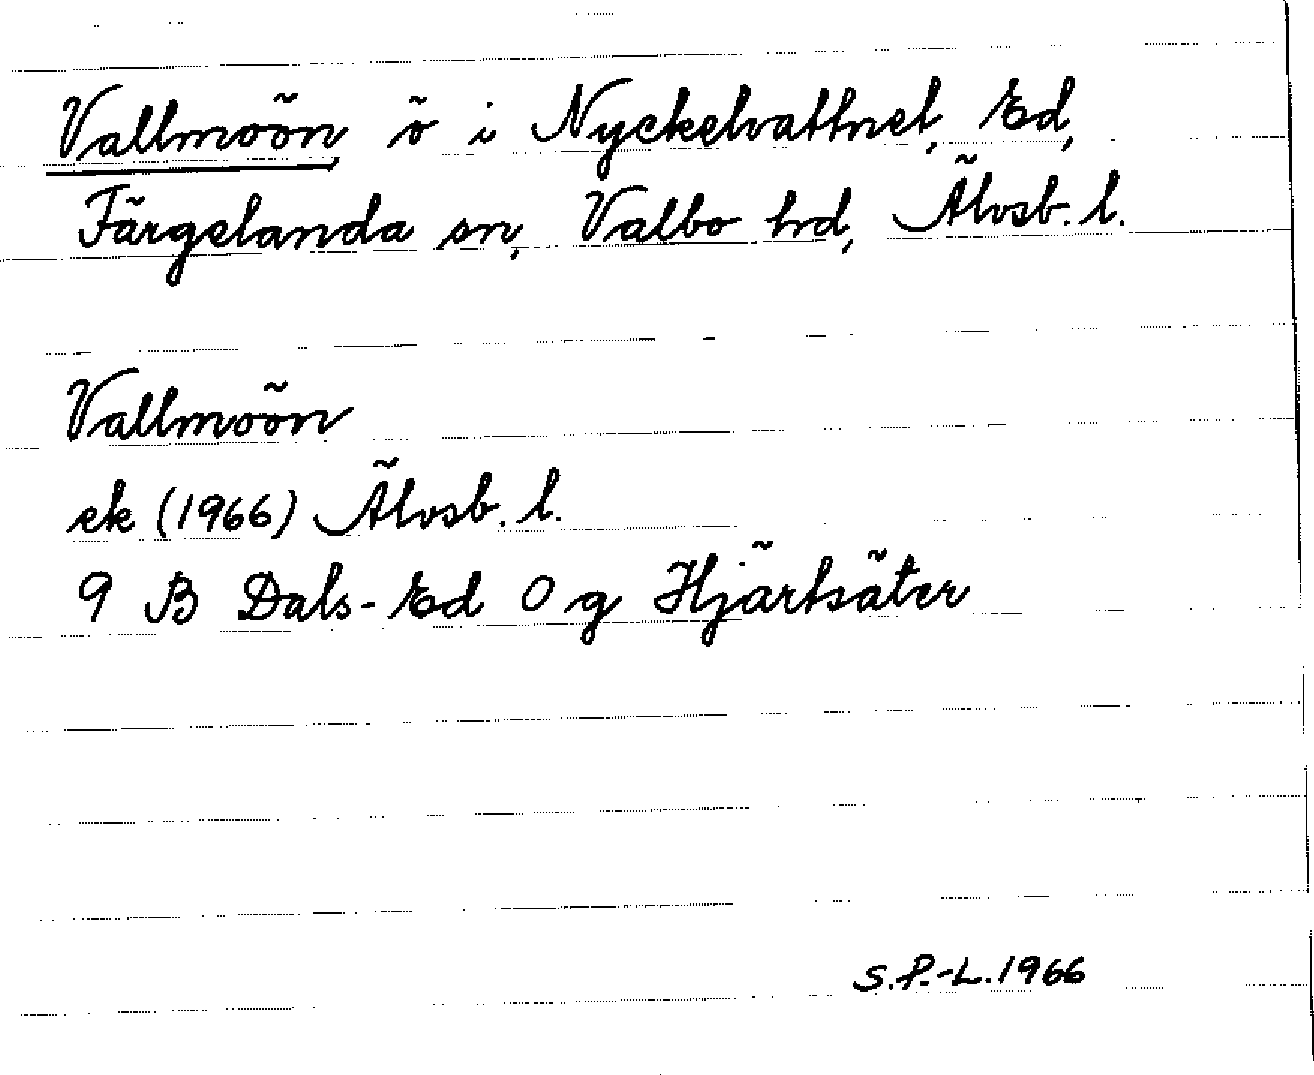 Vallmoön, ö i Nyckelvattnet, Ed,
Färgelanda sn, Valbo hd, Älvsb. l.
Vallmoön
ek (1966) Älvsb. l.
9 B Dals-Ed 0 g Hjärtsäter
S.P.-L.1966